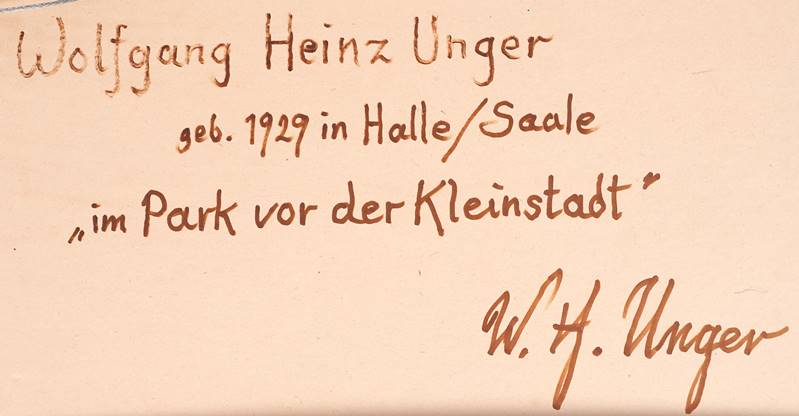 Wolfgang Heinz Unger
geb. 1929 in Halle/Saale
„im Park vor der Kleinstadt"
W. H. Unger